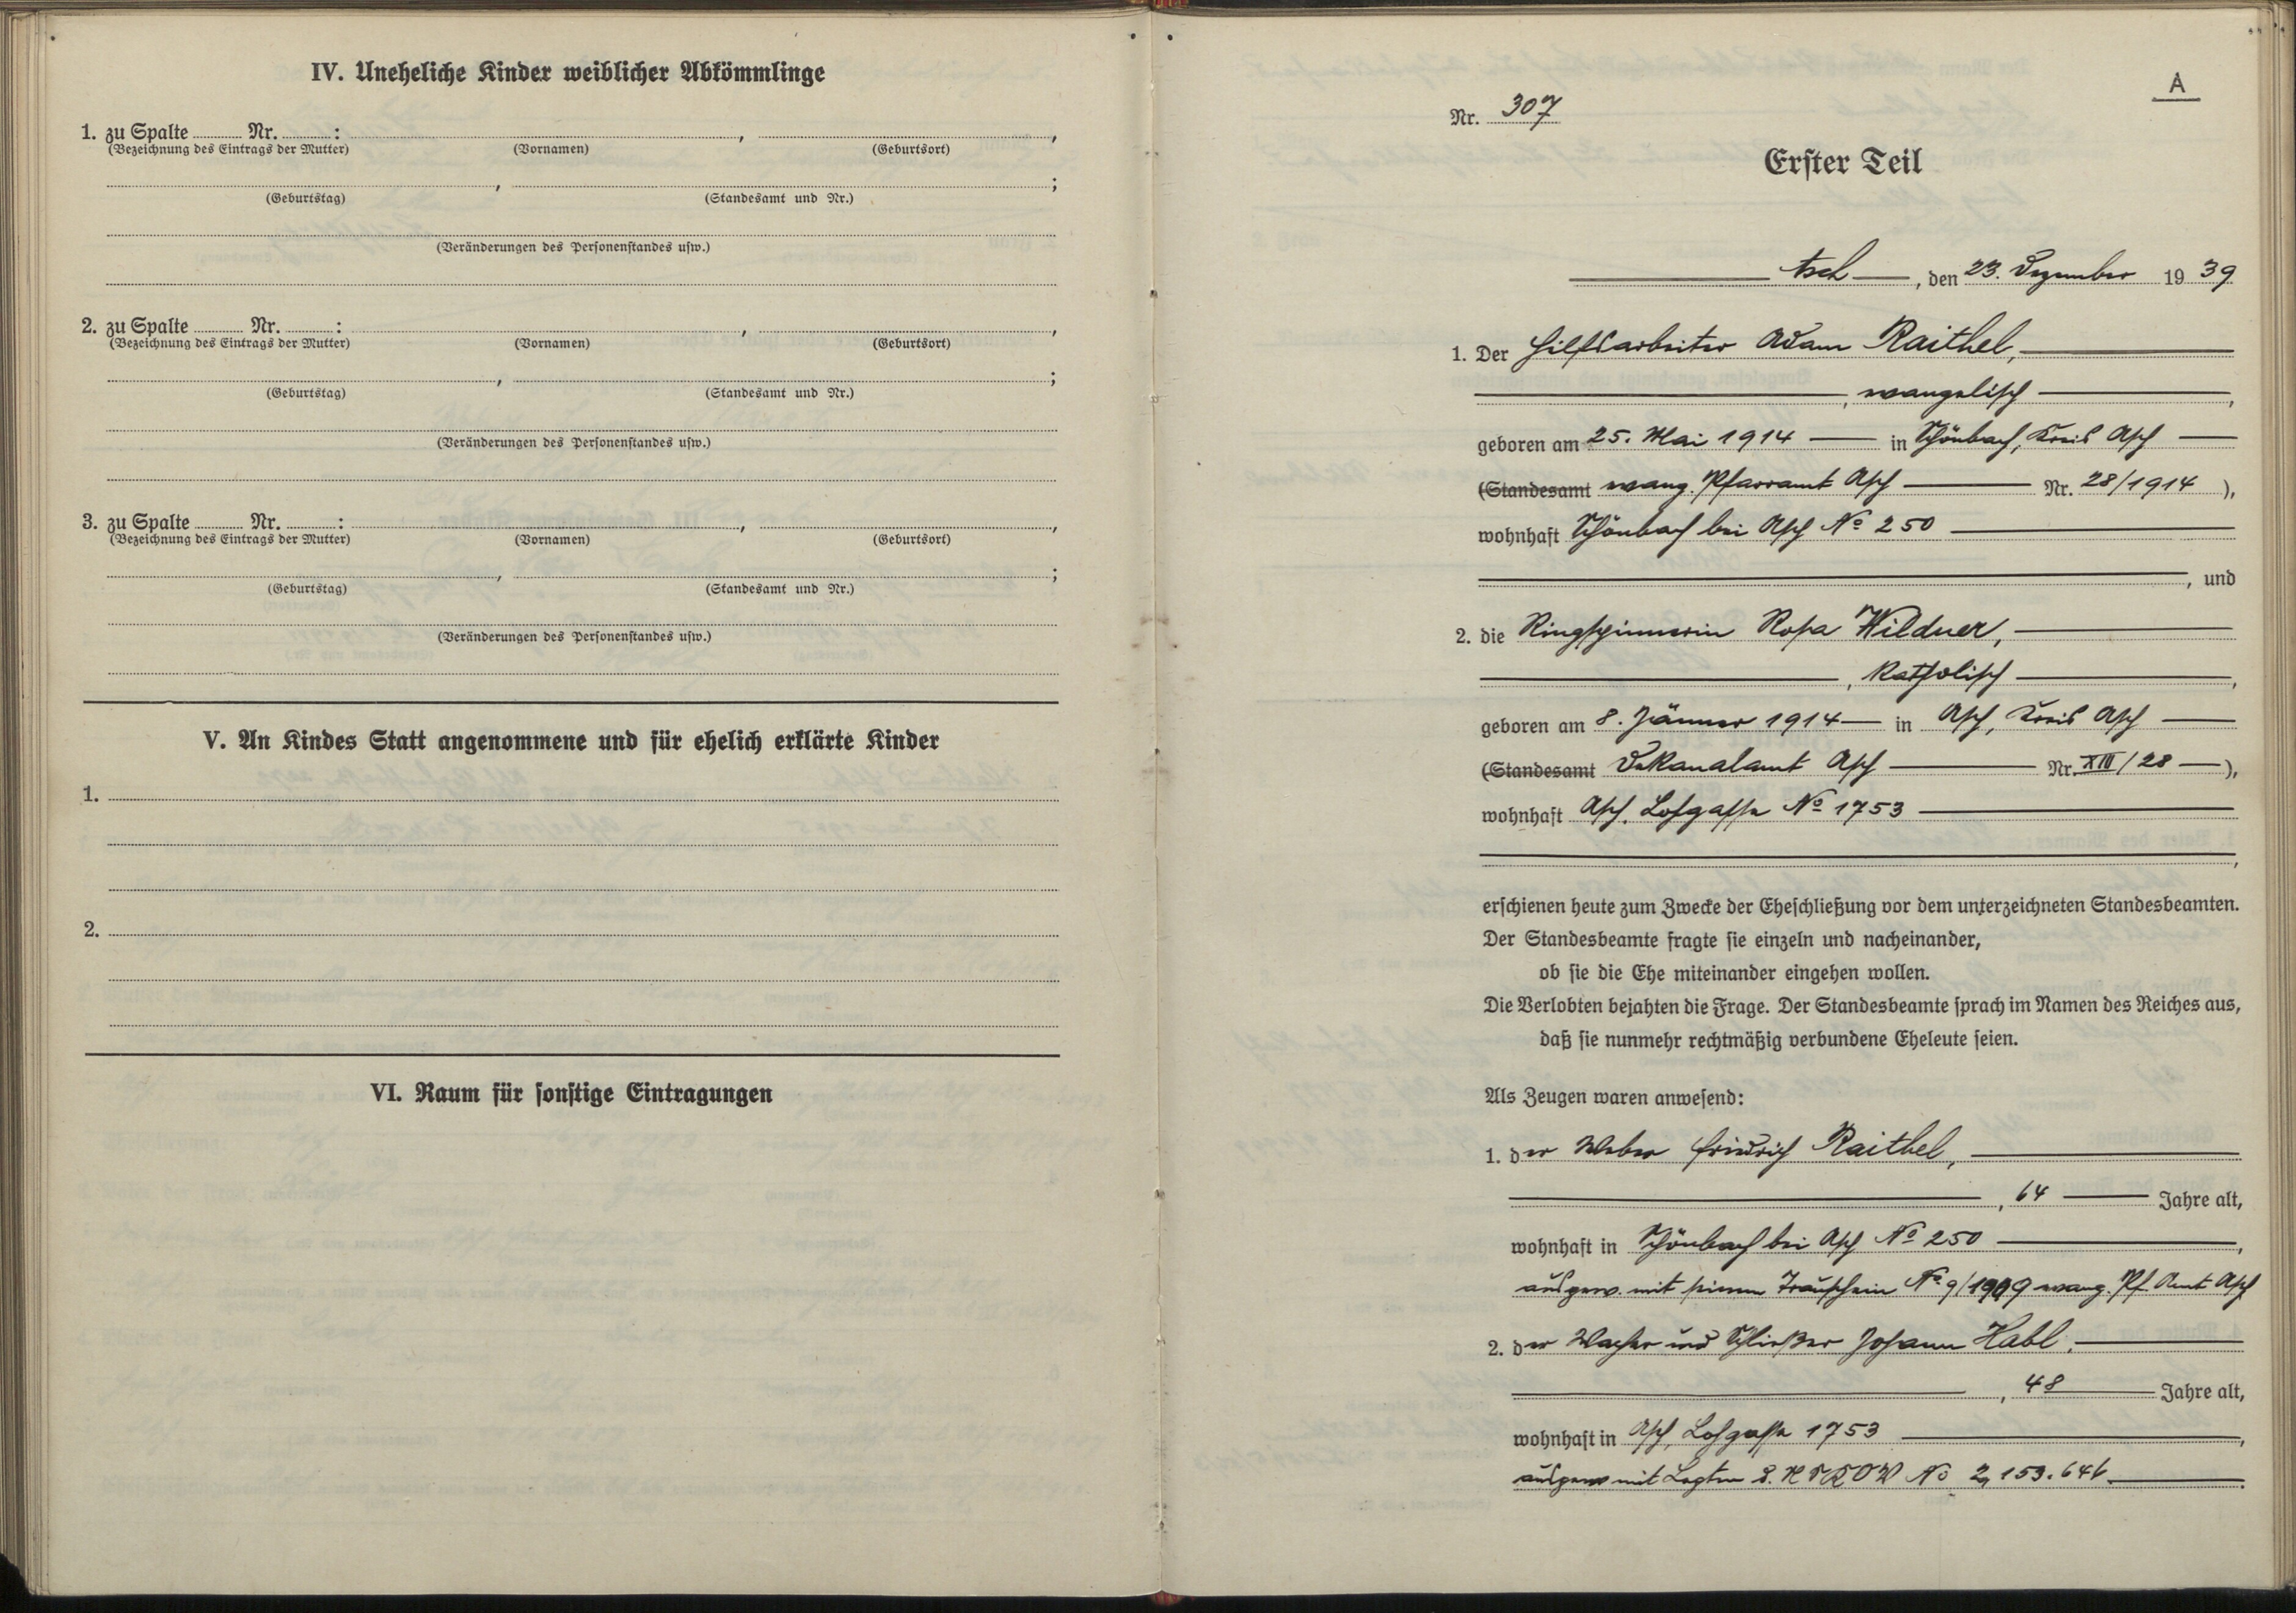 IV. Uneheliche Kinder weiblicher Abkömmlinge
1. zu Spalte Nr. : , ,
(Bezeichnung des Eintrags der Mutter) (Vornamen) (Geburtsort)
, ;
(Geburtstag) (Standesamt und Nr.)
(Veränderungen des Personenstandes usw.)
2. zu Spalte Nr. : , ,
(Bezeichnung des Eintrags der Mutter) (Vornamen) (Geburtsort)
, ;
(Geburtstag) (Standesamt und Nr.)
(Veränderungen des Personenstandes usw.)
3. zu Spalte Nr. : , ,
(Bezeichnung des Eintrags der Mutter) (Vornamen) (Geburtsort)
, ;
(Geburtstag) (Standesamt und Nr.)
(Veränderungen des Personenstandes usw.)
V. An Kindes Statt angenommene und für ehelich erklärte Kinder
1.
2.
VI. Raum für sonstige Eintragungen
A
Nr. 307
Erster Teil
Asch, den 23. Dezember 1939
1. Der Hilfsarbeiter Adam Raithel,
, evangelisch ,
geboren am 25. Mai 1914 in Schönbach, Kreis Asch
(Standesamt evang. Pfarramt Asch Nr. 28/1914 ),
wohnhaft Schönbach bei Asch No 250
, und
2. die Ringspinnerin Rosa Wildner,
, katholisch ,
geboren am 8. Jänner 1914 in Asch, Kreis Asch
(Standesamt Dekanalamt Asch Nr. XIII/28 ),
wohnhaft Asch, Lohgasse No 1753
,
erschienen heute zum Zwecke der Eheschließung vor dem unterzeichneten Standesbeamten.
Der Standesbeamte fragte sie einzeln und nacheinander,
ob sie die Ehe miteinander eingehen wollen.
Die Verlobten bejahten die Frage. Der Standesbeamte sprach im Namen des Reiches aus,
daß sie nunmehr rechtmäßig verbundene Eheleute seien.
Als Zeugen waren anwesend:
1. der Weber Friedrich Raithel,
, 64 Jahre alt,
wohnhaft in Schönbach bei Asch No 250 ,
ausgew. mit seinem Trauschein No 9/1909 evang. Pf. Amt Asch
2. der Wacher und Schließer Johann Habl,
, 48 Jahre alt,
wohnhaft in Asch, Lohgasse 1753 ,
ausgew mit No 2,153.646 .